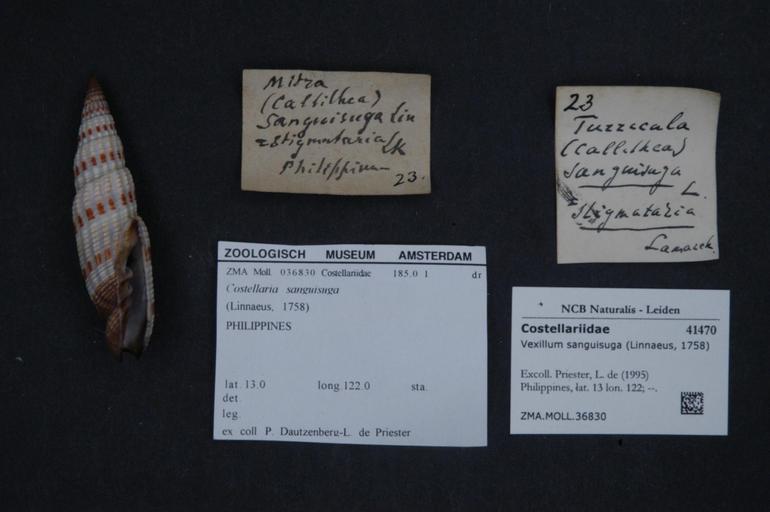 Mitra
(Callithea)
Sanguisuga Lin
= Stigmataria Lk
Philippinen
23.
23
Turricula
(Callithea)
sanguisuga
L.
stigmataria
Lamarck.
ZOOLOGISCH MUSEUM AMSTERDAM
ZMA Moll. 036830 Costellariidae 185.0 1 dr
Costellaria sanguisuga
(Linnaeus, 1758)
PHILIPPINES
lat. 13.0 long. 122.0 sta.
det.
leg.
ex coll P. Dautzenberg-L. de Priester
NCB Naturalis - Leiden
Costellariidae 41470
Vexillum sanguisuga (Linnaeus, 1758)
Excoll. Priester, L. de (1995)
Philippines, lat. 13 lon. 122; --.
ZMA.MOLL.36830